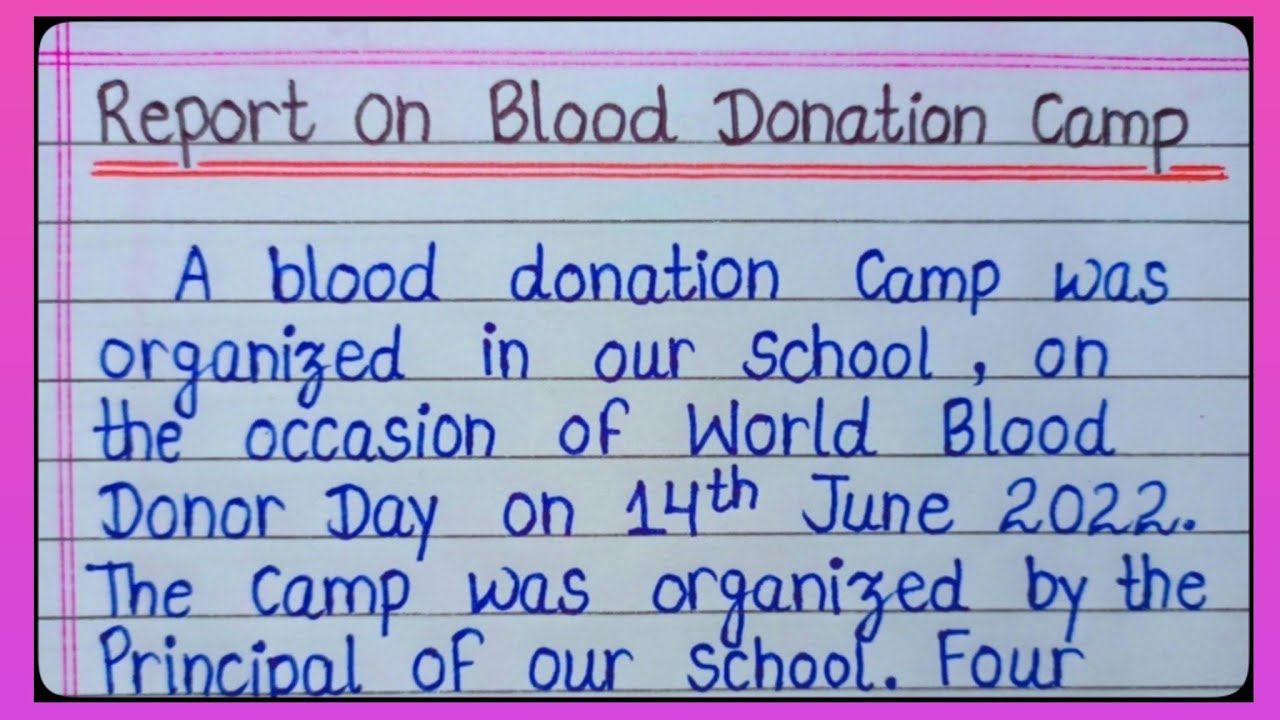 Report on Blood Donation Camp
A blood donation Camp was
organized in our school, on
the occasion of World Blood
Donor Day on 14th June 2022.
The Camp was organized by the
Principal of our school. Four